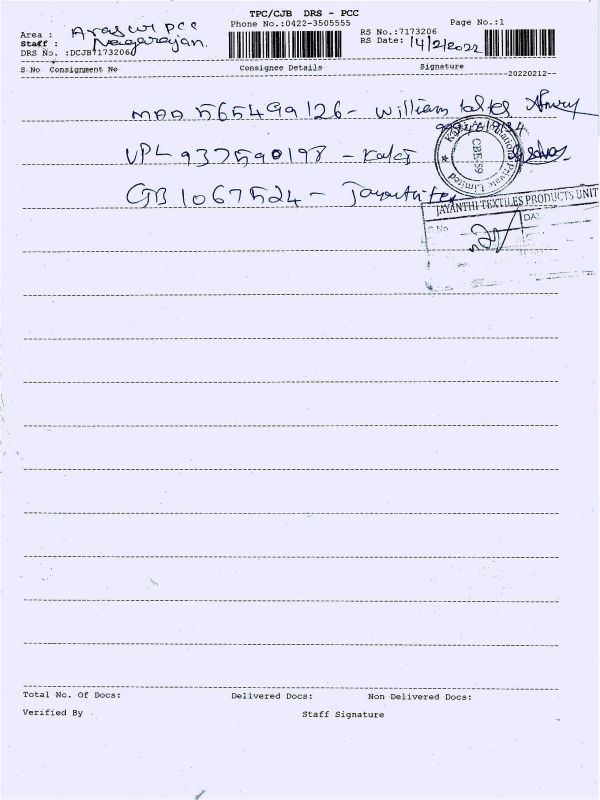 TPC/CJB DRS - PCC
Phone No.:0422-3505555
Page No.:1
Area : PCC
Staff : Nagarajan.
DRS No. :DCJB7173206
RS No.:7173206
RS Date: 14/2/2022
S No Consignment No Consignee Details Signature
--20220212--
MAA 565499126 - William
VPL 937590198 - Kalaj
GB 1067524 -
Private Limited
CBE-59
JAYANTHI TEXTILES PRODUCTS UNIT
No
Total No. Of Docs: Delivered Docs: Non Delivered Docs:
Verified By Staff Signature